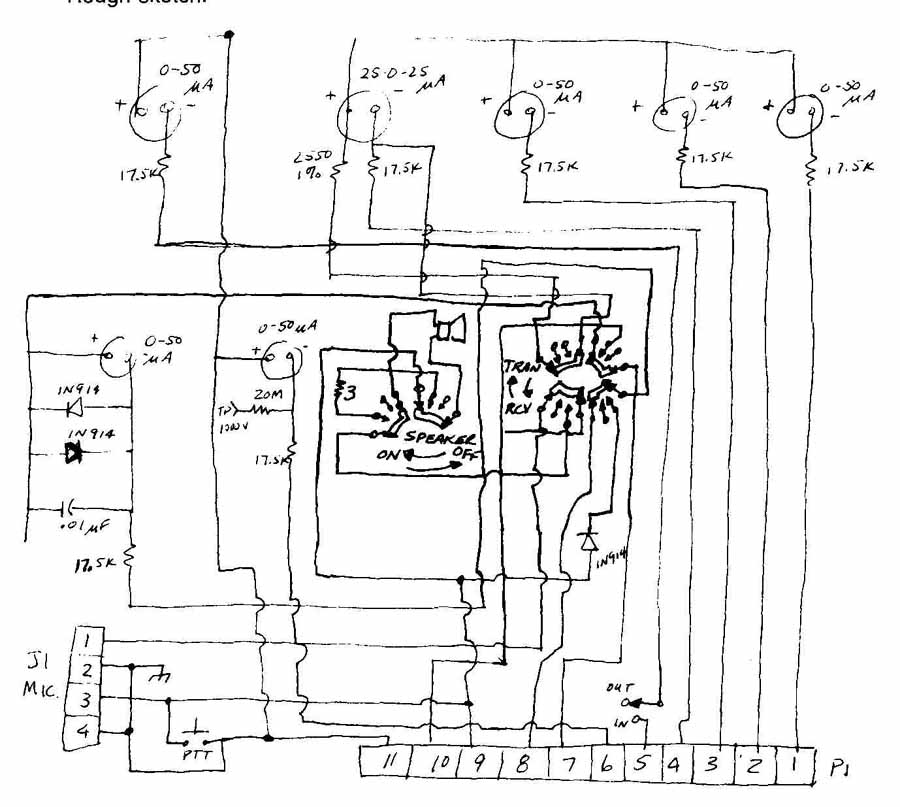 Rough sketch.
0-50
μA
+
-
25-0-25
μA
+
-
0-50
μA
+
-
0-50
μA
+
-
0-50
μA
+
-
17.5K
2550
1%
17.5K
17.5K
17.5K
17.5K
0-50
μA
+
-
0-50μA
+
-
1N914
1N914
.01μF
17.5K
20M
TP
17.5K
3
SPEAKER
ON
OFF
TRAN
RCV
1N914
J1
MIC.
1
2
3
4
PTT
OUT
IN
11 10 9 8 7 6 5 4 3 2 1 P1